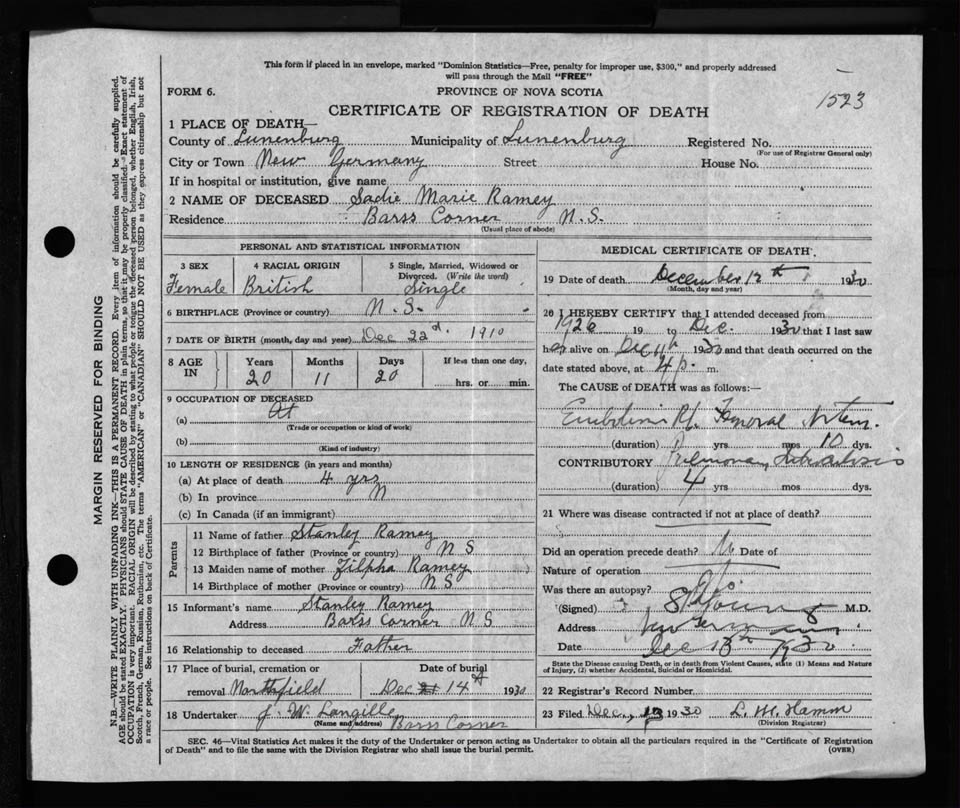 This form if placed in an envelope, marked "Dominion Statistics—Free, penalty for improper use, $300," and properly addressed
will pass through the Mail "FREE"
FORM 6.
PROVINCE OF NOVA SCOTIA
1523
CERTIFICATE OF REGISTRATION OF DEATH
1 PLACE OF DEATH—
County of Lunenburg Municipality of Lunenburg Registered No.
(For use of Registrar General only)
City or Town New Germany Street House No.
If in hospital or institution, give name
2 NAME OF DECEASED Sadie Marie Ramey
Residence Barss Corner N.S.
(Usual place of abode)
PERSONAL AND STATISTICAL INFORMATION
3 SEX Female
4 RACIAL ORIGIN British
5 Single, Married, Widowed or Divorced. (Write the word) Single
6 BIRTHPLACE (Province or country) N.S.
7 DATE OF BIRTH (month, day and year) Dec 22d. 1910
8 AGE IN Years 20 Months 11 Days 20 If less than one day, hrs. or min.
9 OCCUPATION OF DECEASED
(a) At
(Trade or occupation or kind of work)
(b)
(Kind of industry)
10 LENGTH OF RESIDENCE (in years and months)
(a) At place of death 4 yrs
(b) In province
(c) In Canada (if an immigrant)
Parents
11 Name of father Stanley Ramey
12 Birthplace of father (Province or country) N S
13 Maiden name of mother Zilpha Ramey
14 Birthplace of mother (Province or country) N S
15 Informant's name Stanley Ramey
Address Barss Corner N S
16 Relationship to deceased Father
17 Place of burial, cremation or removal Northfield
Date of burial Dec 14th 1930
18 Undertaker J. W. Langille
(Name and address) Barss Corner
MEDICAL CERTIFICATE OF DEATH
19 Date of death December 12th 1930
(Month, day and year)
20 I HEREBY CERTIFY that I attended deceased from
1926 19 to Dec. 1930 that I last saw
her alive on Dec 11th 1930 and that death occurred on the
date stated above, at 4 p. m.
The CAUSE of DEATH was as follows:—
Embolism Rt. Femoral
(duration) yrs mos 10 dys.
CONTRIBUTORY Pulmonary
(duration) 4 yrs mos dys.
21 Where was disease contracted if not at place of death?
Did an operation precede death? No Date of
Nature of operation
Was there an autopsy?
(Signed) Young M.D.
Address New Germany
Date Dec 13th 1930
State the Disease causing Death, or in death from Violent Causes, state (1) Means and Nature
of Injury, (2) whether Accidental, Suicidal or Homicidal.
22 Registrar's Record Number
23 Filed Dec, 13 1930 L. M. Hamm
(Division Registrar)
SEC. 46—Vital Statistics Act makes it the duty of the Undertaker or person acting as Undertaker to obtain all the particulars required in the "Certificate of Registration
of Death" and to file the same with the Division Registrar who shall issue the burial permit.
(OVER)
MARGIN RESERVED FOR BINDING
N.B.—WRITE PLAINLY WITH UNFADING INK—THIS IS A PERMANENT RECORD. Every item of information should be carefully supplied.
AGE should be stated EXACTLY. PHYSICIANS should STATE CAUSE OF DEATH in plain terms, so that it may be properly classified. Exact statement of
OCCUPATION is very important. RACIAL ORIGIN will be described by stating to what people or tongue the deceased person belonged, whether English, Irish,
Scotch, French, German, Russian, Ruthenian, etc. The terms "AMERICAN" or "CANADIAN" SHOULD NOT BE USED as they express citizenship but not
a race or people. See instructions on back of Certificate.